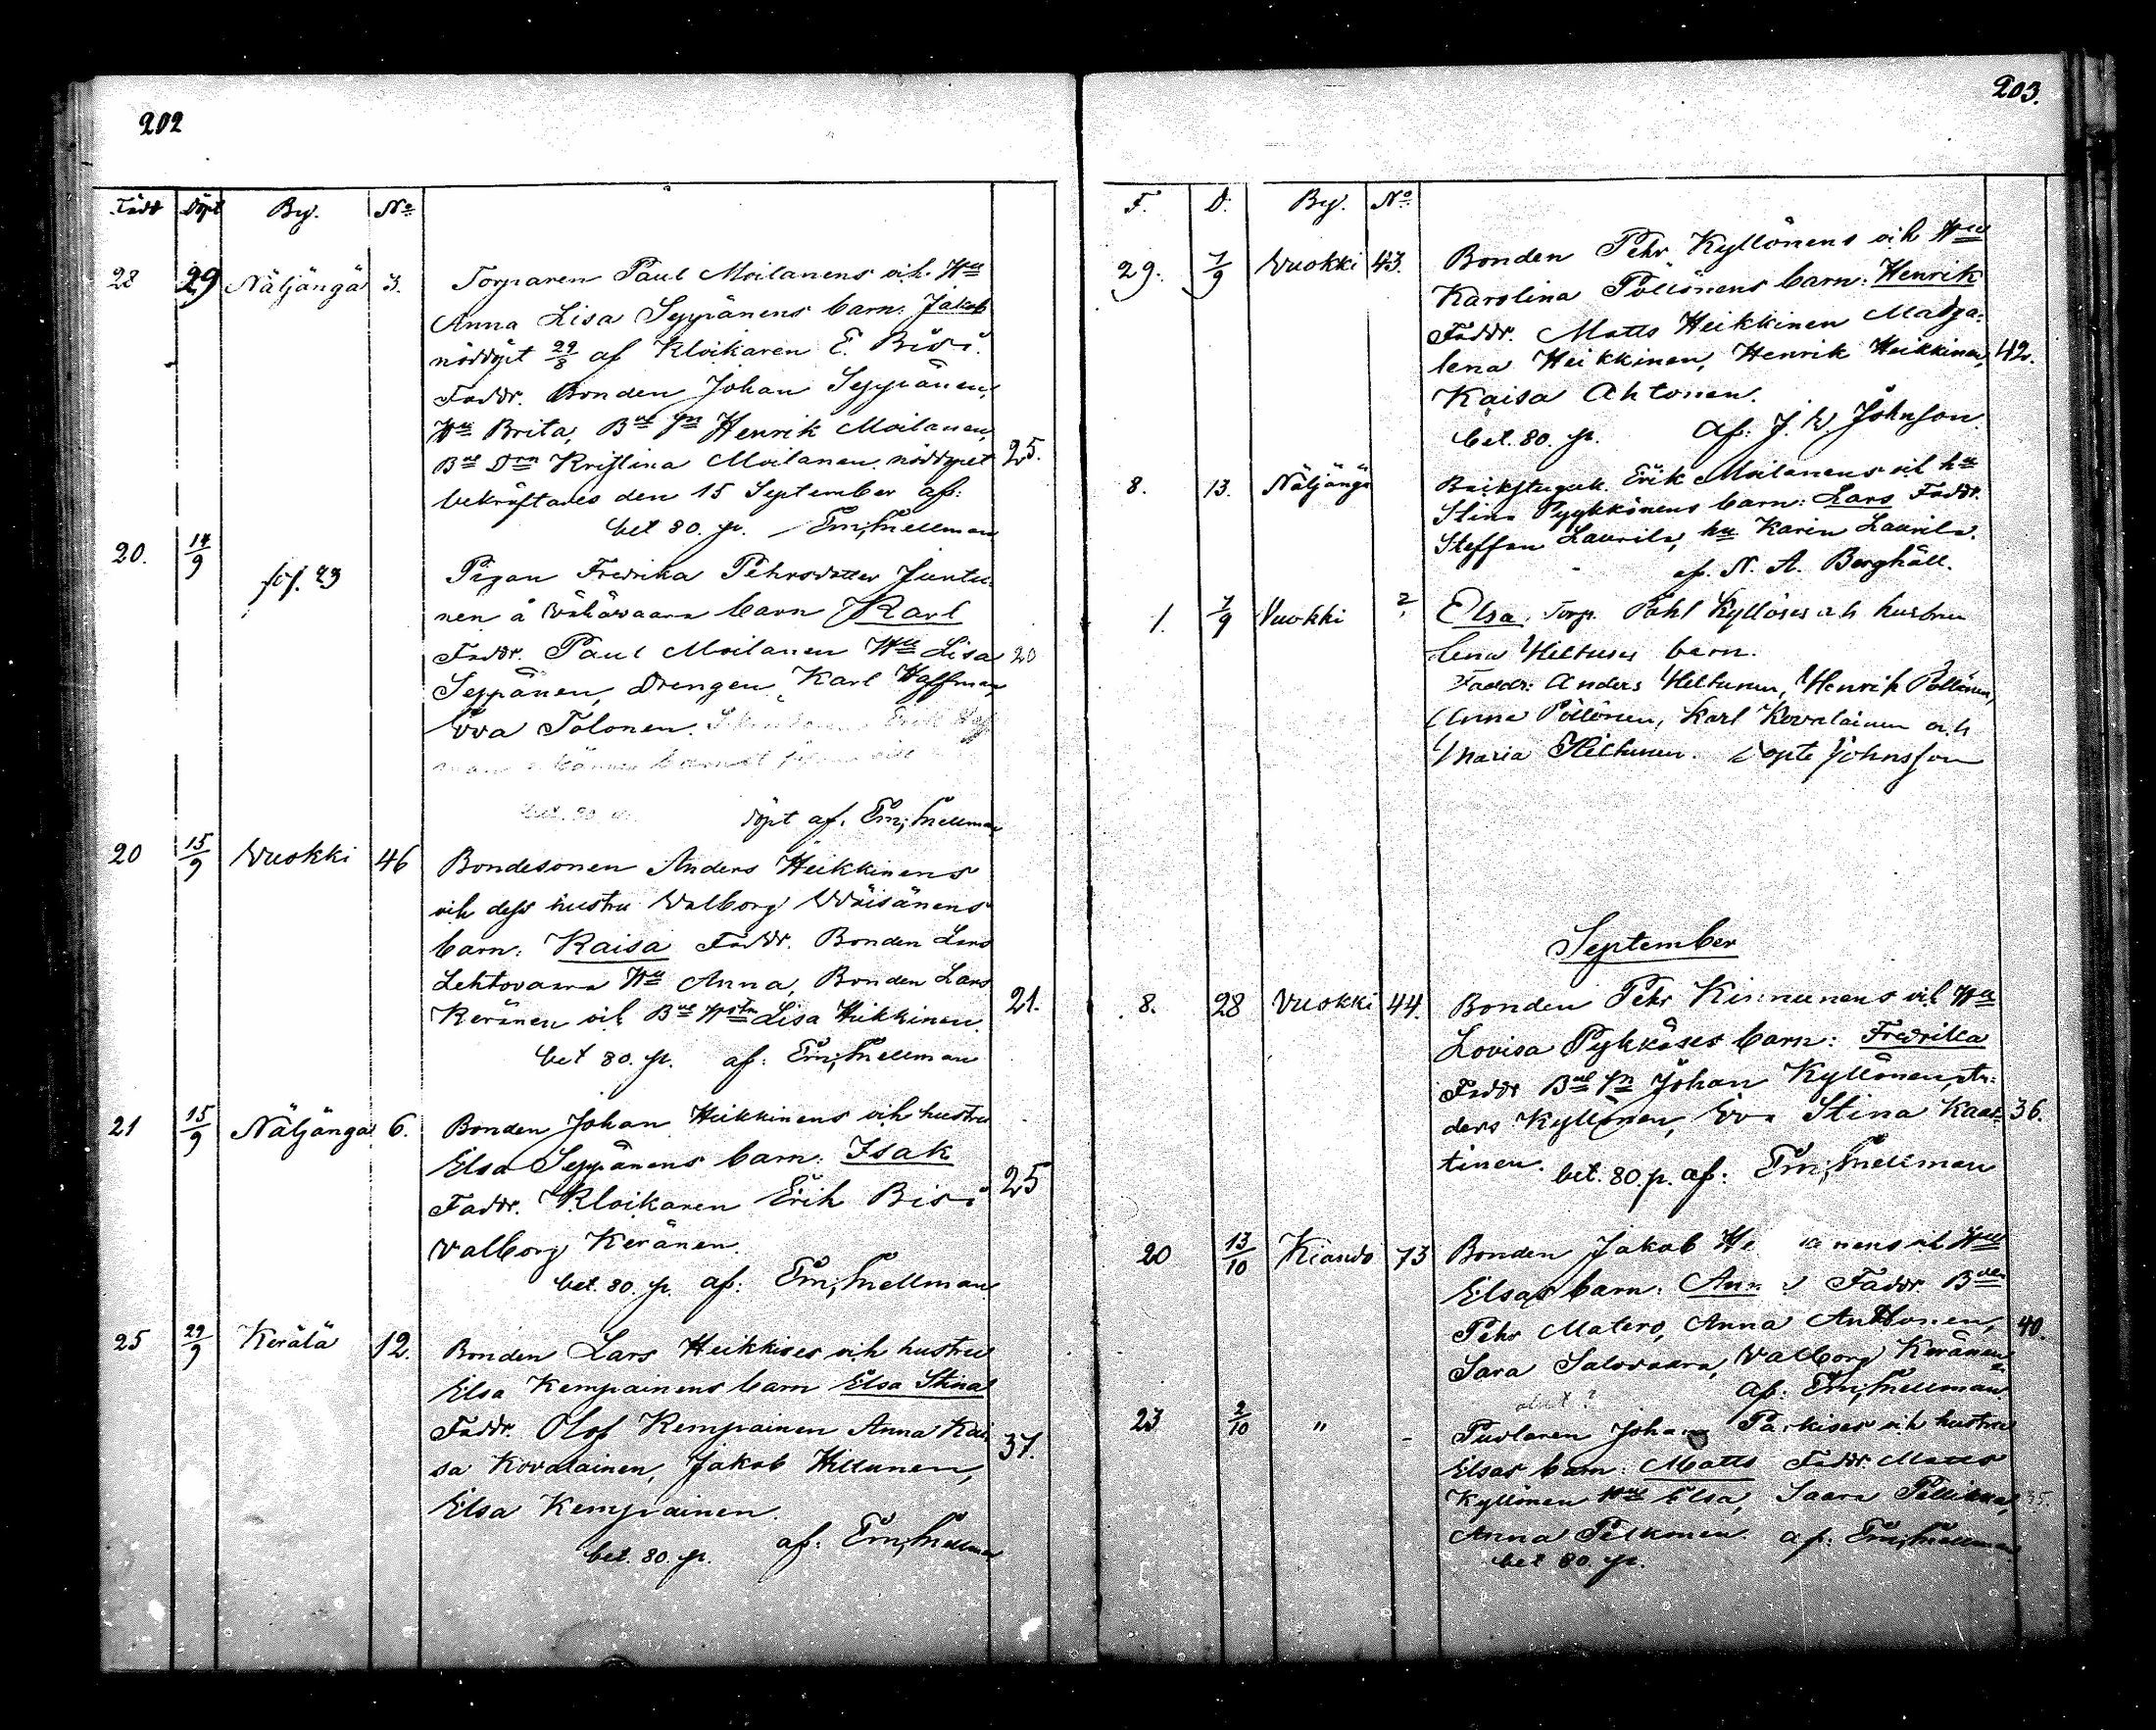 202
Född Döpt By. No
28 29 Näljängä 3. Torparen Paul Moilanens och Hu
Anna Lisa Seppänens barn: Jakob
nöddöpt 29/8 af Klockaren E.
Faddr. Bonden Johan Seppänen,
Hu Brita, Bde Sn Henrik Moilanen,
Bde Drn Kristina Moilanen. nöddopet 25.
bekräftades den 15 September af:
bet 80. p. Em; Snellman
20. 14/9 Pigan Fredrika Pehrsdotter Juntu-
fol. 23
nen å Wähäwaara barn Karl
Faddr. Paul Moilanen Hu Lisa 20
Seppänen, Drengen Karl Hoffman,
Eva Tolonen. Erik
barnet
bet. 80 p. döpt af. Em; Snellman
20 15/9 Wuokki 46 Bondesonen Anders Heikkinens
och dess hustru Walborg Wäisänens
barn: Kaisa Faddr. Bonden Lars
Lehtovaara Hu Anna, Bonden Lars
Keränen och Bde Hstn Lisa Heikkinen. 21.
bet 80. p. af: Em; Snellman
21 15/9 Näljänga 6. Bonden Johan Heikkinens och hustru
Elsa Seppänens barn: Isak
Faddr. Klockaren Erik 25
Valborg Keränen.
bet. 80. p. af: Em; Snellman
25 29/9 Kerälä 12. Bonden Lars Heikkises och hustru
Elsa Kempainens barn Elsa Stina
Faddr. Olof Kempainen Anna Kai-
sa Kovalainen, Jakob Hiltunen, 37.
Elsa Kempainen.
bet. 80. p. af: Em; Snellman
203.
F. D. By. No
29. 7/9 Wuokki 43. Bonden Pehr Kyllönens och Hu
Karolina Pöllönens barn: Henrik
Faddr. Matts Heikkinen Madga-
lena Heikkinen, Henrik Heikkinen, 42.
Kaisa Ahtonen.
bet. 80. p. af: J. W. Johnson.
8. 13. Näljängä Erik Moilanens och hu
Stina Pyykkönens barn: Lars Faddr.
Steffan Laurila, hu Karin Laurila.
af. N. A. Berghäll.
1. 7/9 Vuokki 2 Elsa, Torp. Påhl Kyllöses och hustru
Lena Hiltuses barn.
Faddr: Anders Hiltunen, Henrik Pöllänen,
Anna Pöllönen, Karl Kovalainen och
Maria Hiltunen. döpte Johnsson
September
8. 28 Vuokki 44. Bonden Pehr Kinnunens och Hu
Lovisa Pykkäses barn: Fredrika
Faddr Bde Sn Johan Kyllönen, An-
ders Kyllönen, Eva Stina Kaar- 36.
tinen. bet. 80. p. af: Em; Snellman
20 13/10 Kiando 73 Bonden Jakob nens och Hu
Elsas barn: Anna Faddr.
Pehr Matero, Anna Anttonen, 40.
Sara Salovaara, Valborg Keränen
af: Em; Snellman
23 2/10 " - Johan Parkises och hustru
Elsas barn: Matts Faddr. Matts
Kyllönen Hu Elsa, Saara 35.
Anna Pelkonen. af: Em; Snellman
bet 80. p.